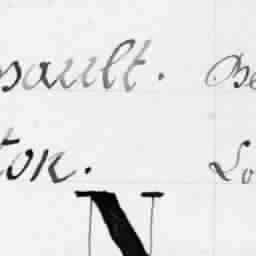 sault. Be
ton. Lo
N